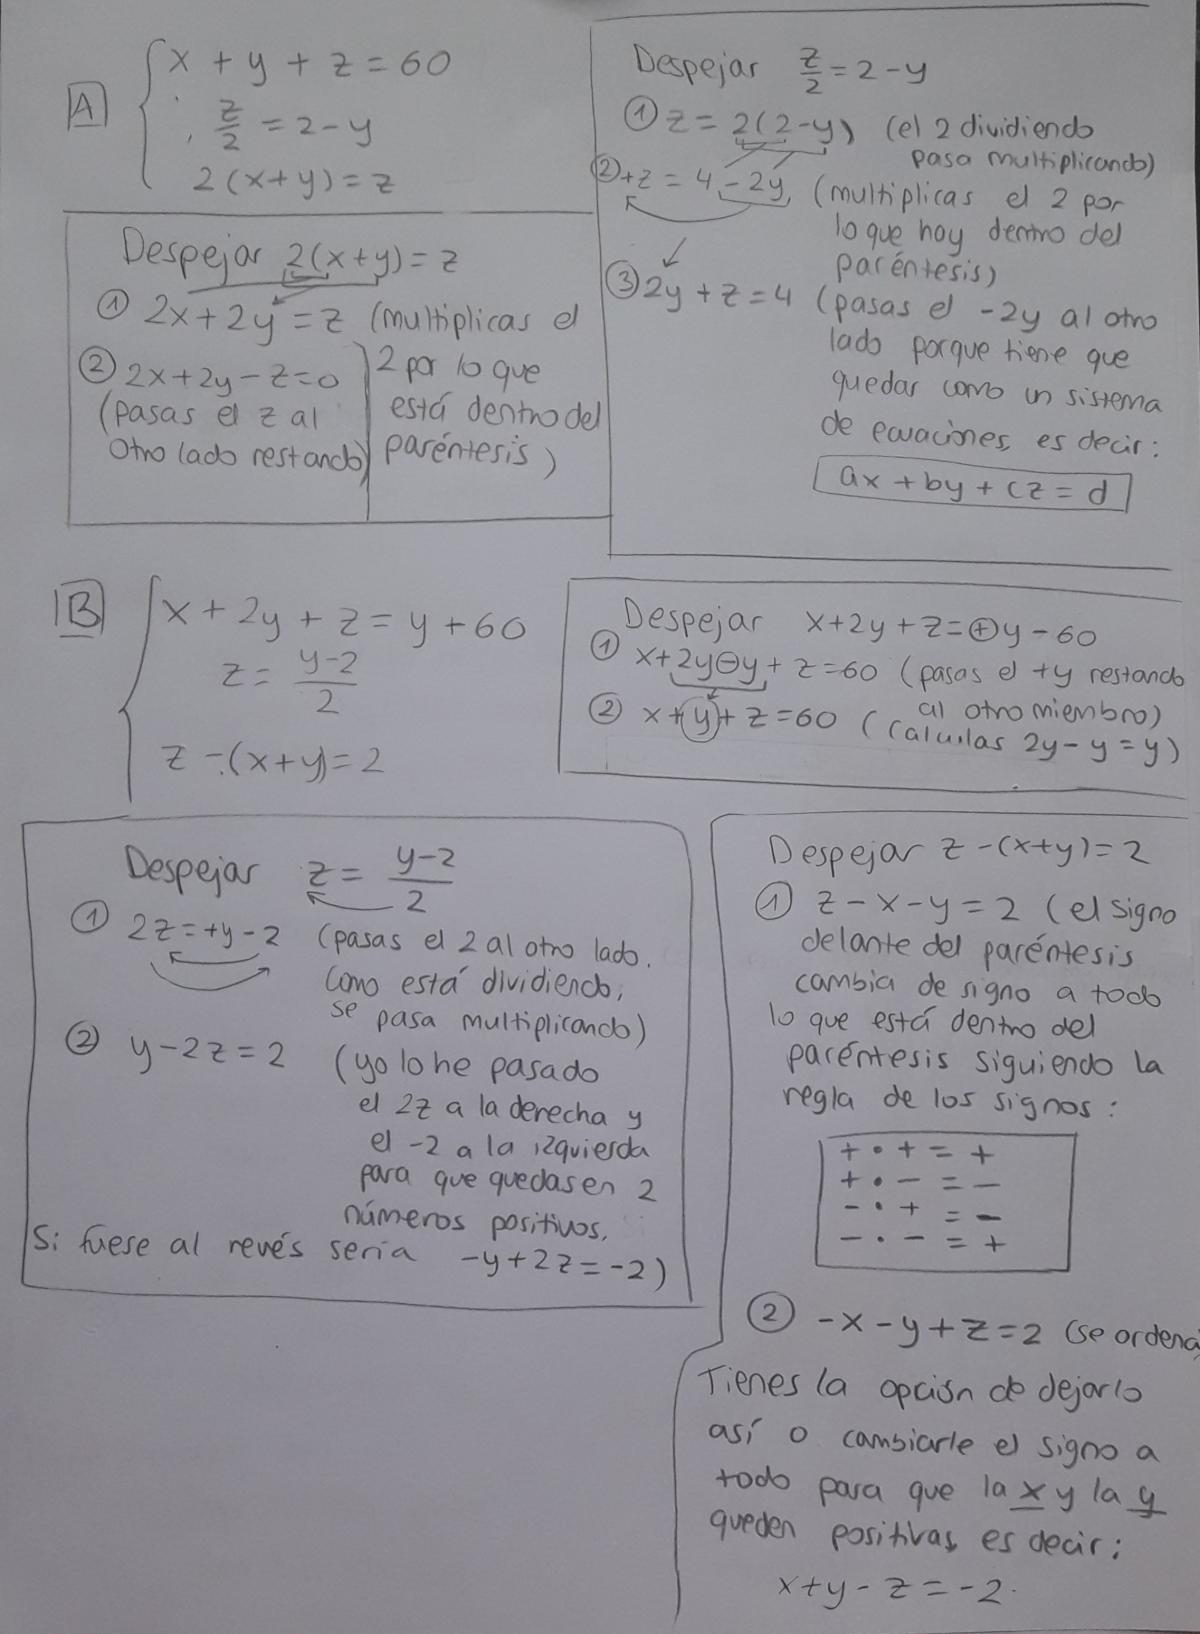 A
x + y + z = 60
z/2 = 2 - y
2(x+y) = z
Despejar z/2 = 2 - y
① z = 2(2-y) (el 2 dividiendo
pasa multiplicando)
② +z = 4 - 2y (multiplicas el 2 por
lo que hay dentro del
paréntesis)
③ 2y + z = 4 (pasas el -2y al otro
lado porque tiene que
quedar como un sistema
de ecuaciones, es decir:
ax + by + cz = d
Despejar 2(x+y) = z
① 2x + 2y = z (multiplicas el
2 por lo que
está dentro del
paréntesis)
② 2x+2y-z=0
(pasas el z al
otro lado restando)
B
x + 2y + z = y + 60
z = y-2/2
z -(x+y) = 2
Despejar x+2y+z=+y-60
① x+2y-y+z=60 (pasas el +y restando
al otro miembro)
② x+y+z=60 (calculas 2y-y=y)
Despejar z = y-2/2
① 2z=+y-2 (pasas el 2 al otro lado.
Como está dividiendo,
se pasa multiplicando)
② y-2z=2 (yo lo he pasado
el 2z a la derecha y
el -2 a la izquierda
para que quedasen 2
números positivos.
Si fuese al revés sería -y+2z=-2)
Despejar z-(x+y)=2
① z-x-y=2 (el signo
delante del paréntesis
cambia de signo a todo
lo que está dentro del
paréntesis siguiendo la
regla de los signos:
+ · + = +
+ · - = -
- · + = -
- · - = +
② -x-y+z=2 (se ordena)
Tienes la opción de dejarlo
así o cambiarle el signo a
todo para que la x y la y
queden positivas, es decir:
x+y-z=-2.